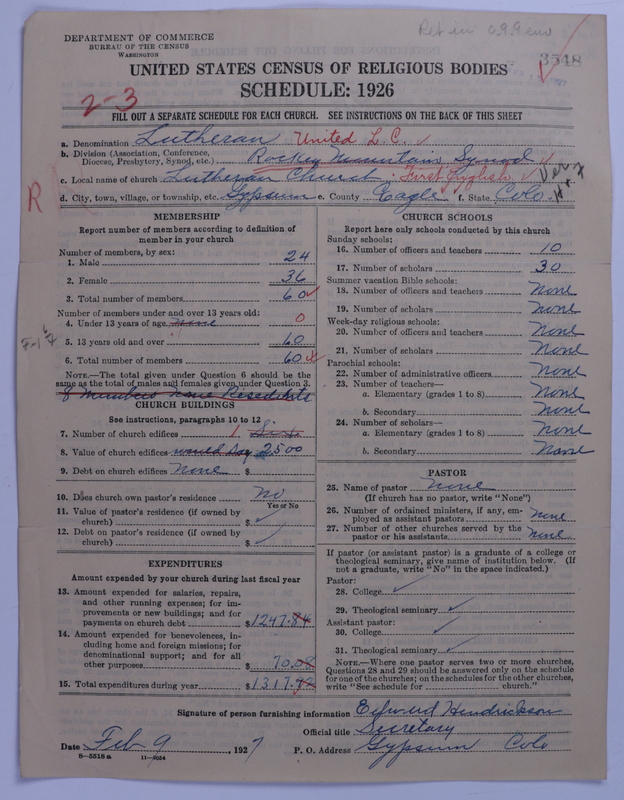 Ret in
DEPARTMENT OF COMMERCE
BUREAU OF THE CENSUS
WASHINGTON
3548
UNITED STATES CENSUS OF RELIGIOUS BODIES
SCHEDULE: 1926
2-3
FILL OUT A SEPARATE SCHEDULE FOR EACH CHURCH. SEE INSTRUCTIONS ON THE BACK OF THIS SHEET
a. Denomination Lutheran United L. C. ✓
b. Division (Association, Conference, Diocese, Presbytery, Synod, etc.) Rocky Mountain Synod ✓
c. Local name of church Lutheran Church : First English ✓
R
d. City, town, village, or township, etc. Gypsum e. County Eagle f. State Colo
MEMBERSHIP
Report number of members according to definition of
member in your church
Number of members, by sex:
1. Male 24
2. Female 36
3. Total number of members 60 ✓
Number of members under and over 13 years old:
4. Under 13 years of age None 0
5. 13 years old and over 60
6. Total number of members 60
NOTE.—The total given under Question 6 should be the
same as the total of males and females given under Question 3.
8 Members None Residents
CHURCH BUILDINGS
See instructions, paragraphs 10 to 12
7. Number of church edifices 1
8. Value of church edifices would say 2500
9. Debt on church edifices None $
10. Does church own pastor's residence No
Yes or No
11. Value of pastor's residence (if owned by
church) $ ✓
12. Debt on pastor's residence (if owned by
church) $ ✓
EXPENDITURES
Amount expended by your church during last fiscal year
13. Amount expended for salaries, repairs,
and other running expenses; for im-
provements or new buildings; and for
payments on church debt $1247.84
14. Amount expended for benevolences, in-
cluding home and foreign missions; for
denominational support; and for all
other purposes $ 70.08
15. Total expenditures during year $1317.92
CHURCH SCHOOLS
Report here only schools conducted by this church
Sunday schools:
16. Number of officers and teachers 10
17. Number of scholars 30
Summer vacation Bible schools:
18. Number of officers and teachers None
19. Number of scholars None
Week-day religious schools:
20. Number of officers and teachers None
21. Number of scholars None
Parochial schools:
22. Number of administrative officers None
23. Number of teachers—
a. Elementary (grades 1 to 8) None
b. Secondary None
24. Number of scholars—
a. Elementary (grades 1 to 8) None
b. Secondary None
PASTOR
25. Name of pastor None
(If church has no pastor, write "None")
26. Number of ordained ministers, if any, em-
ployed as assistant pastors None
27. Number of other churches served by the
pastor or his assistants None
If pastor (or assistant pastor) is a graduate of a college or
theological seminary, give name of institution below. (If
not a graduate, write "No" in the space indicated.)
Pastor:
28. College ✓
29. Theological seminary ✓
Assistant pastor:
30. College ✓
31. Theological seminary ✓
NOTE.—Where one pastor serves two or more churches,
Questions 28 and 29 should be answered only on the schedule
for one of the churches; on the schedules for the other churches,
write "See schedule for church."
Signature of person furnishing information Edward Hendrickson
Official title Secretary
Date Feb 9, 1927 P. O. Address Gypsum Colo
8—5518a 11—9034